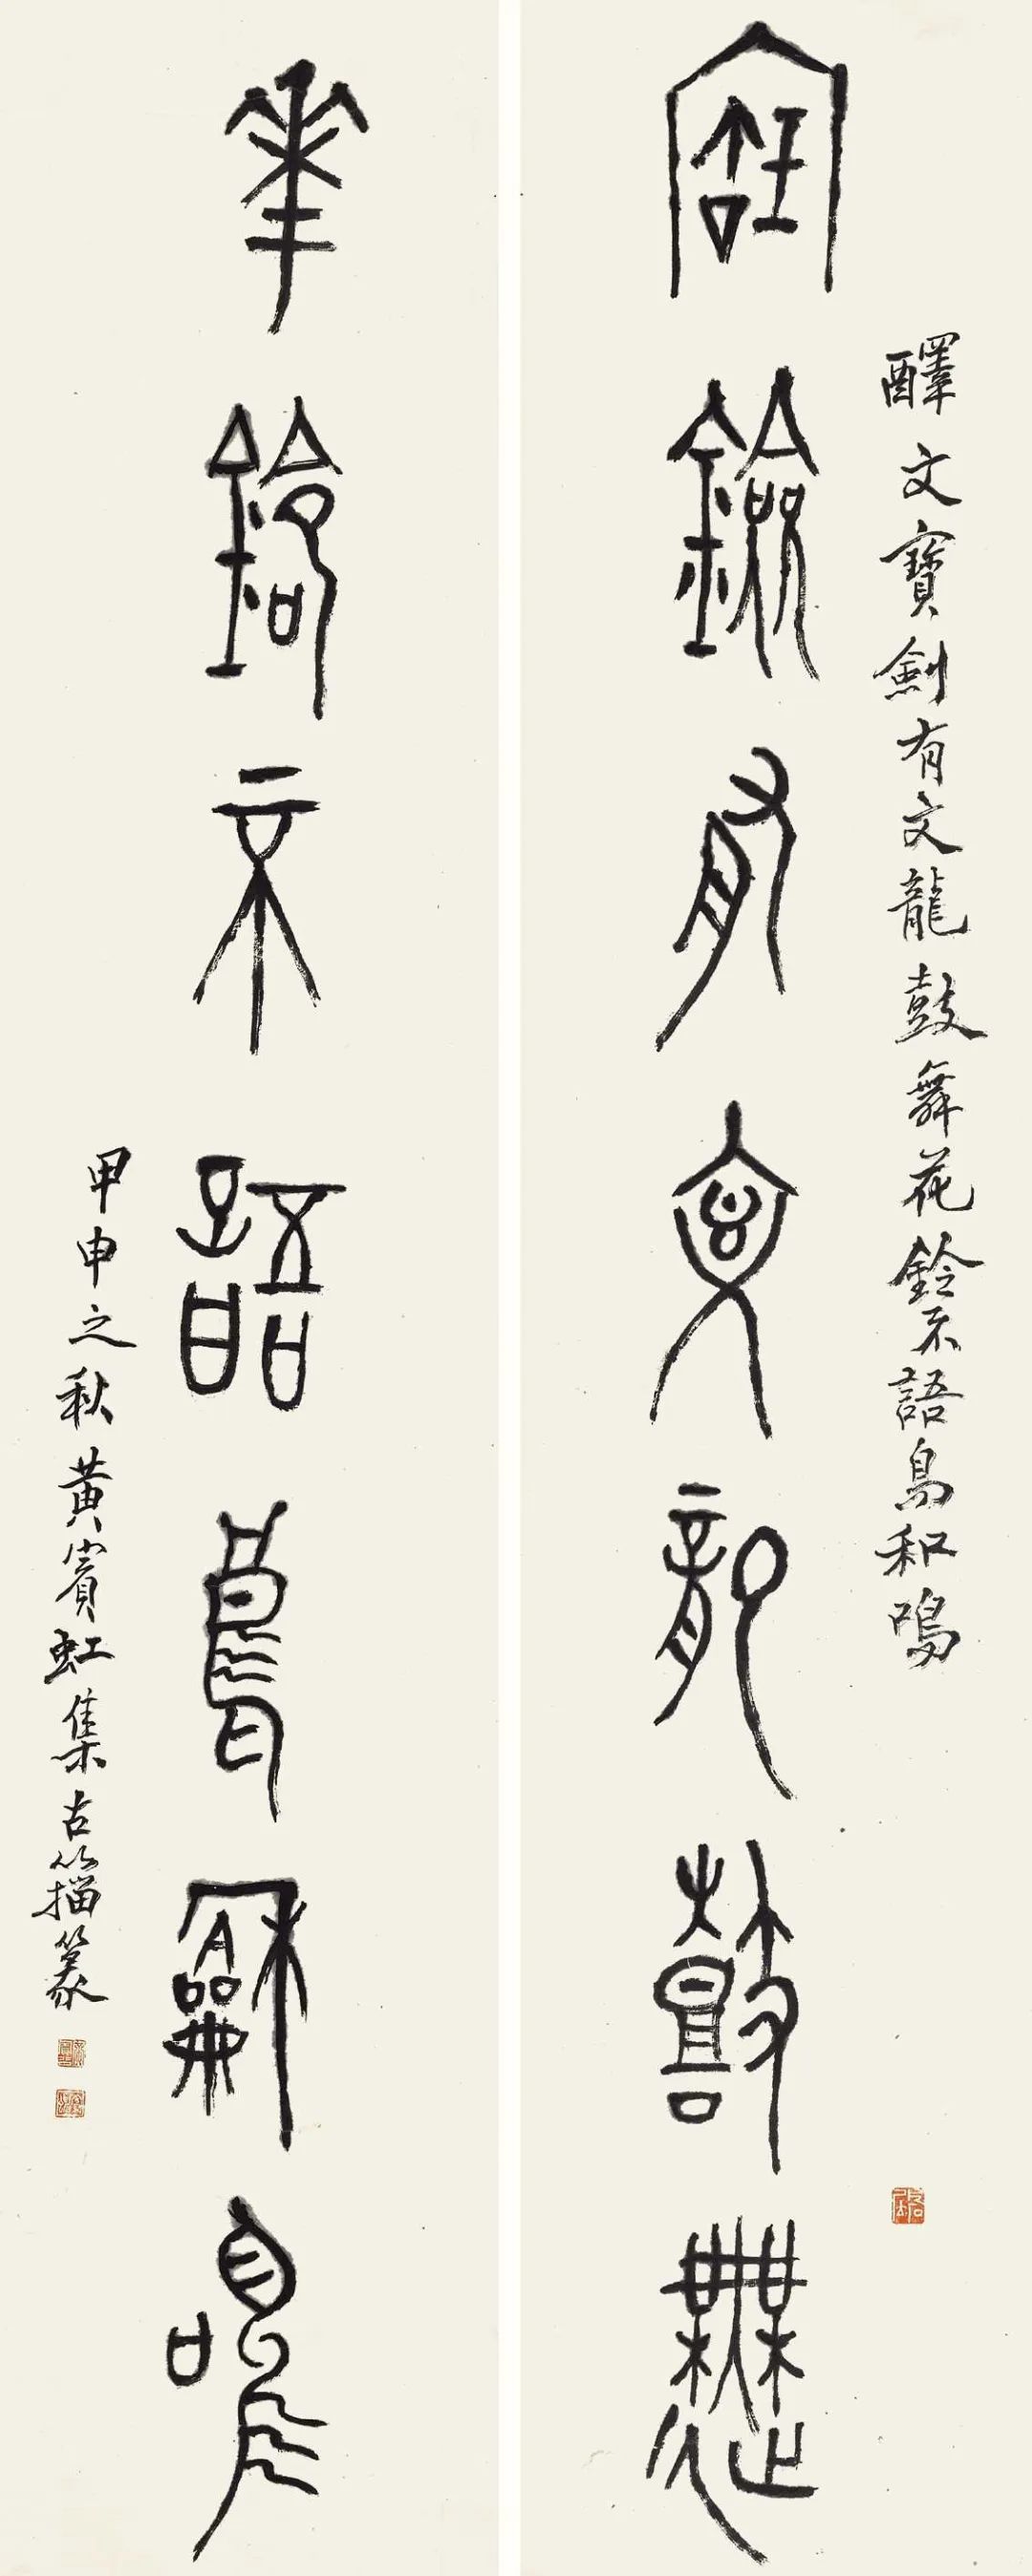 寶劍有文龍鼓舞
釋文寶劍有文龍鼓舞花鈴不語鳥和鳴
華鈴不語鳥龢鳴
甲申之秋黃賓虹集古籀篆